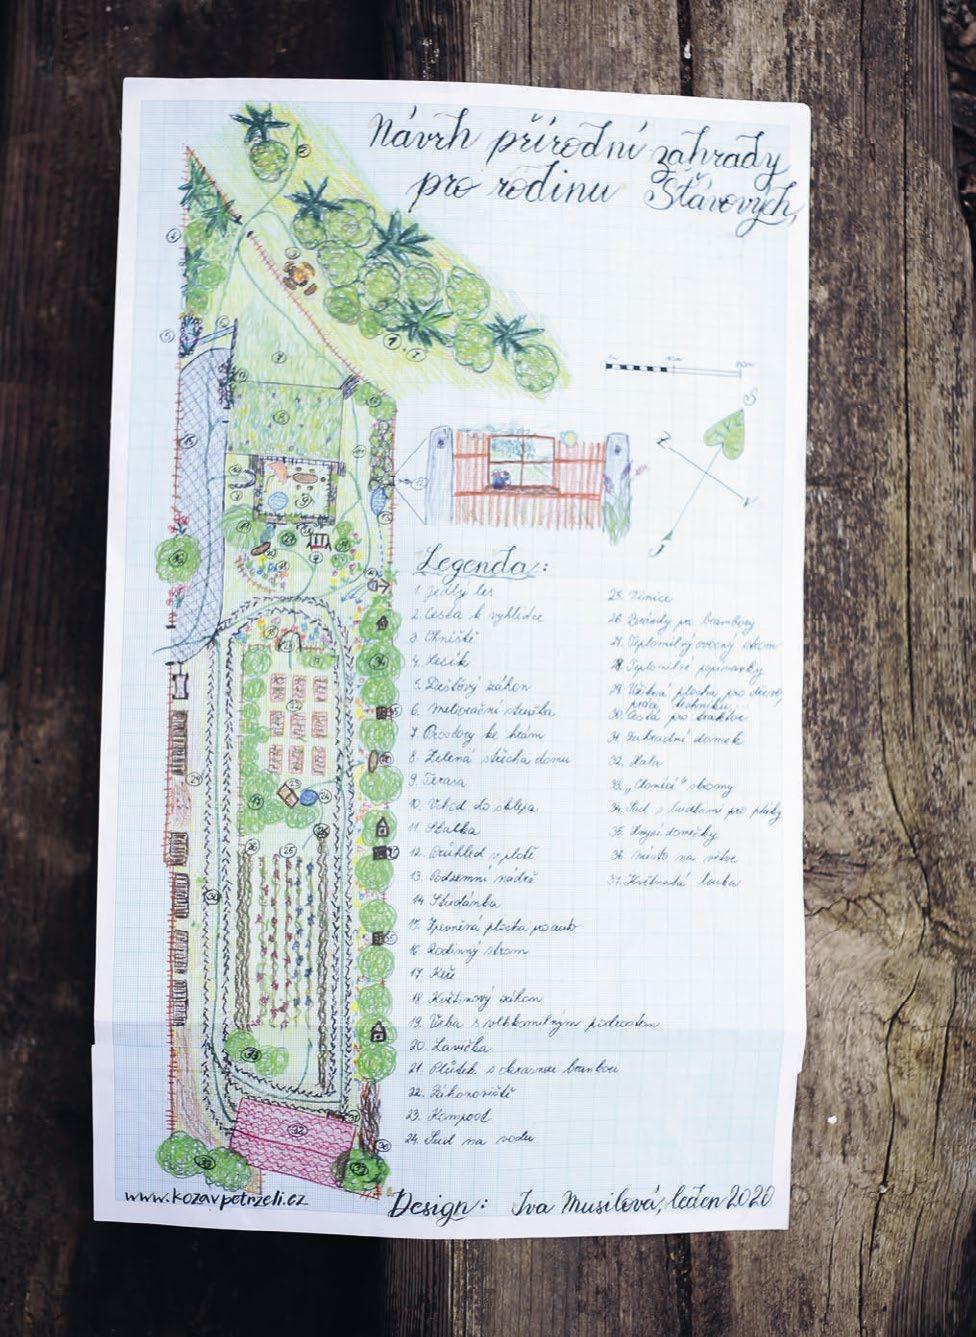 Návrh přírodní zahrady
pro rodinu Šťávových
Legenda:
1. Jedlý les
2. Cesta k vyhlídce
3. Ohniště
4. Lesík
5. Dešťový záhon
6. Meliorační stružka
7. Prostory ke hrám
8. Zelená střecha domu
9. Terasa
10. Vchod do sklepa
11. Skalka
12. Průhled v plotě
13. Podzemní nádrž
14. Studánka
15. Zpevněná plocha pro auto
16. Rodinný strom
17. Keř
18. Květinový záhon
19. Vrba s vlhkomilným podrostem
20. Lavička
21. Plůtek s okrasnou brankou
22. Záhonoviště
23. Kompost
24. Sud na vodu
25. Vinice
26. pro brambory
27. Teplomilný ovocný strom
28. Teplomilné popínavky
29. Úložná plocha pro dřevo,
techniku...
30. Cesta pro traktor
31. Zahradní domek
32. Hala
33. „Clonící" stromy
34. Sad s budkami pro ptáky
35. Hmyzí domečky
36. Místo na větve
37. Květnatá louka
www.kozavpetrzeli.cz
Design: Iva Musilová, leden 2020